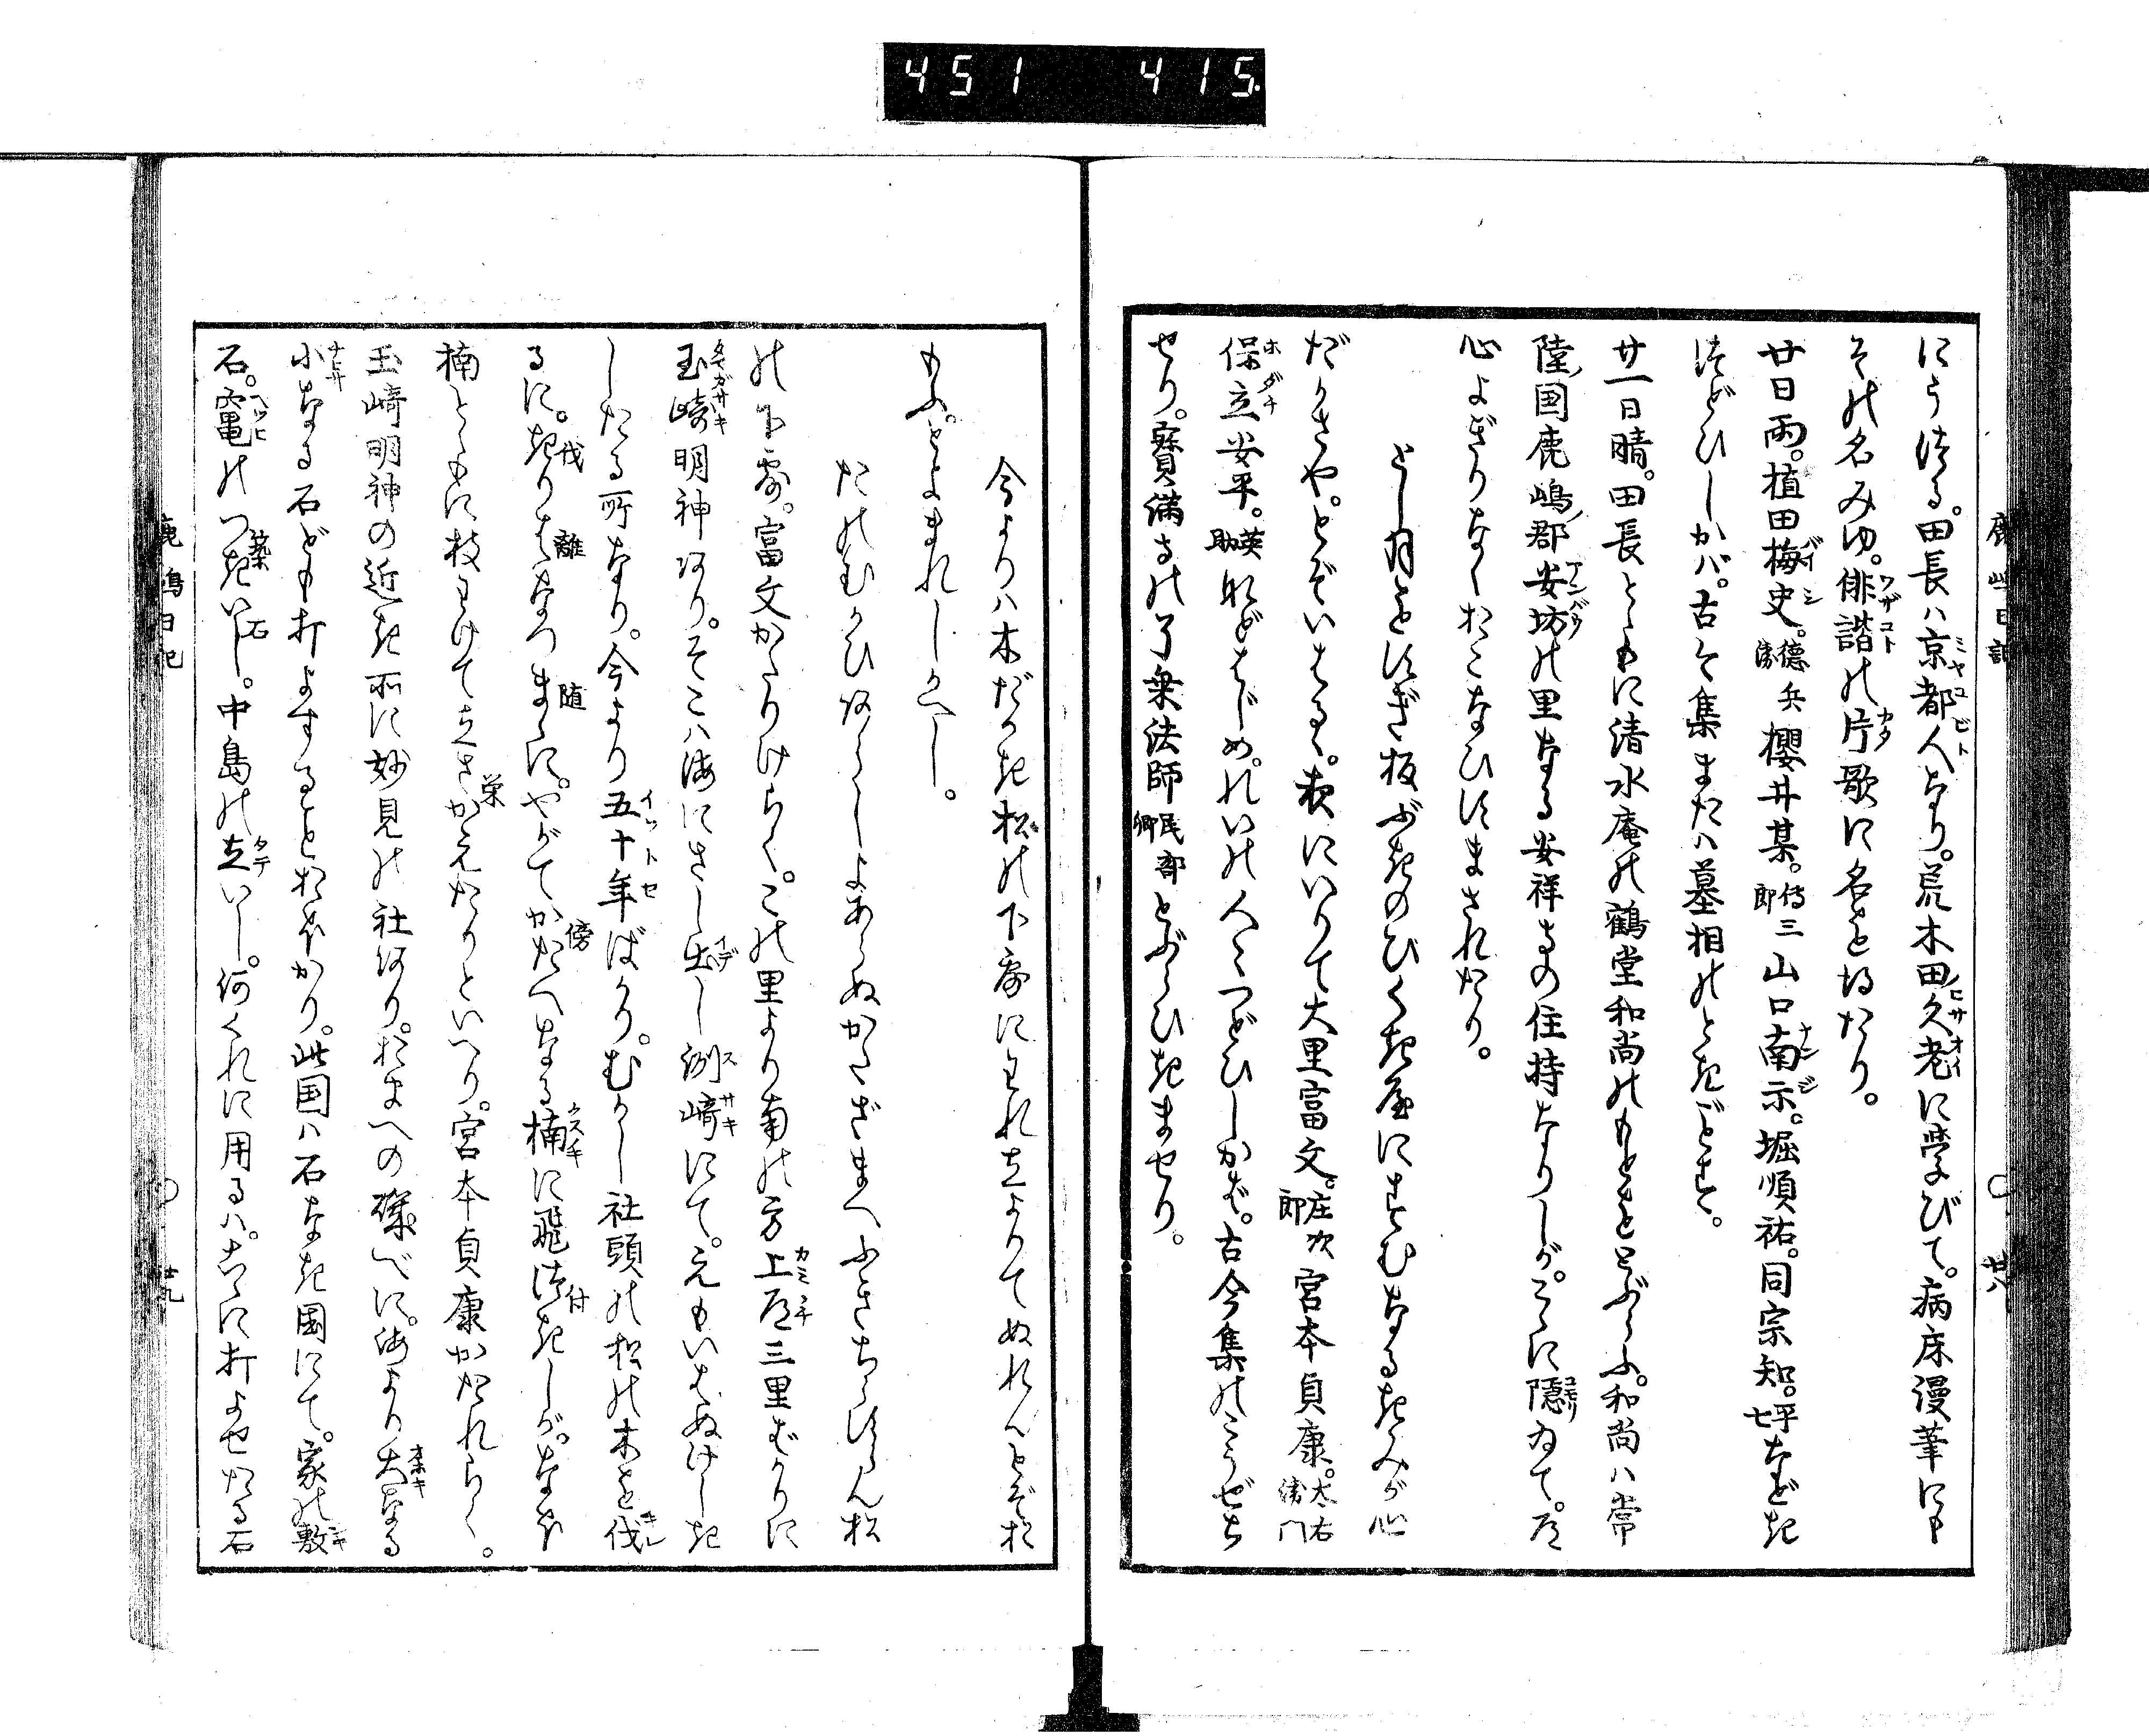 451 415
鹿嶋日記
廿八
にうつる。田長ハ京都人なり。荒木田久老に学びて。病床漫筆にも
その名みゆ。俳諧の片歌に名を得たり。
廿日雨。植田梅史。徳兵衛 櫻井某。傳三郎 山口南示。堀順祐。同宗知。平七などき
つどひしかバ。古今集またハ墓相のときごとす。
廿一日晴。田長とゝもに清水庵の鶴堂和尚のもとをとぶらふ。和尚ハ常
陸国鹿嶋郡安坊の里なる安祥寺の住持なりしが。こゝに隠ゐて。
心よぎりなくおこなひすまされたり。
とし月をすぎ板ぶきのひくき屋にすむなるきみが心
だかさや。とぞいはるゝ。夜にいりて大里富文。庄次郎 宮本貞康。太右衛門
保立安平。英助 などはじめ。れいの人々つどひしかば。古今集のこうぜち
せり。寳満寺の了乗法師民部卿とぶらひきませり。
今よりハ木だかき松の下露に立よりてぬれんとぞお
もふ。とよまれしかへし。
たのむかひあらしよあらぬかざまへふきちらすらん松
の下露。富文かたりけらく。この里より南の方上道三里ばかりに
玉崎明神あり。そこハ海にさし出し洲崎にて。えもいはぬけしき
したる所なり。今より五十年ばかり。むかし社頭の松の木を伐
るに。きりはなつまゝに。やがてかたへなる楠に飛つきしが。なほ
楠とゝもに枝わけて立さかえたりといへり。宮本貞康かたれらく。
玉崎明神の近き所に妙見の社あり。おまへの礒べに。海より大なる
小なる石ども打よすることおほかり。此国ハ石なき国にて。家の敷
石。竈のつきいし。中島の立いし。何くれに用るハ。こゝに打よせたる石
鹿嶋日記
廿九